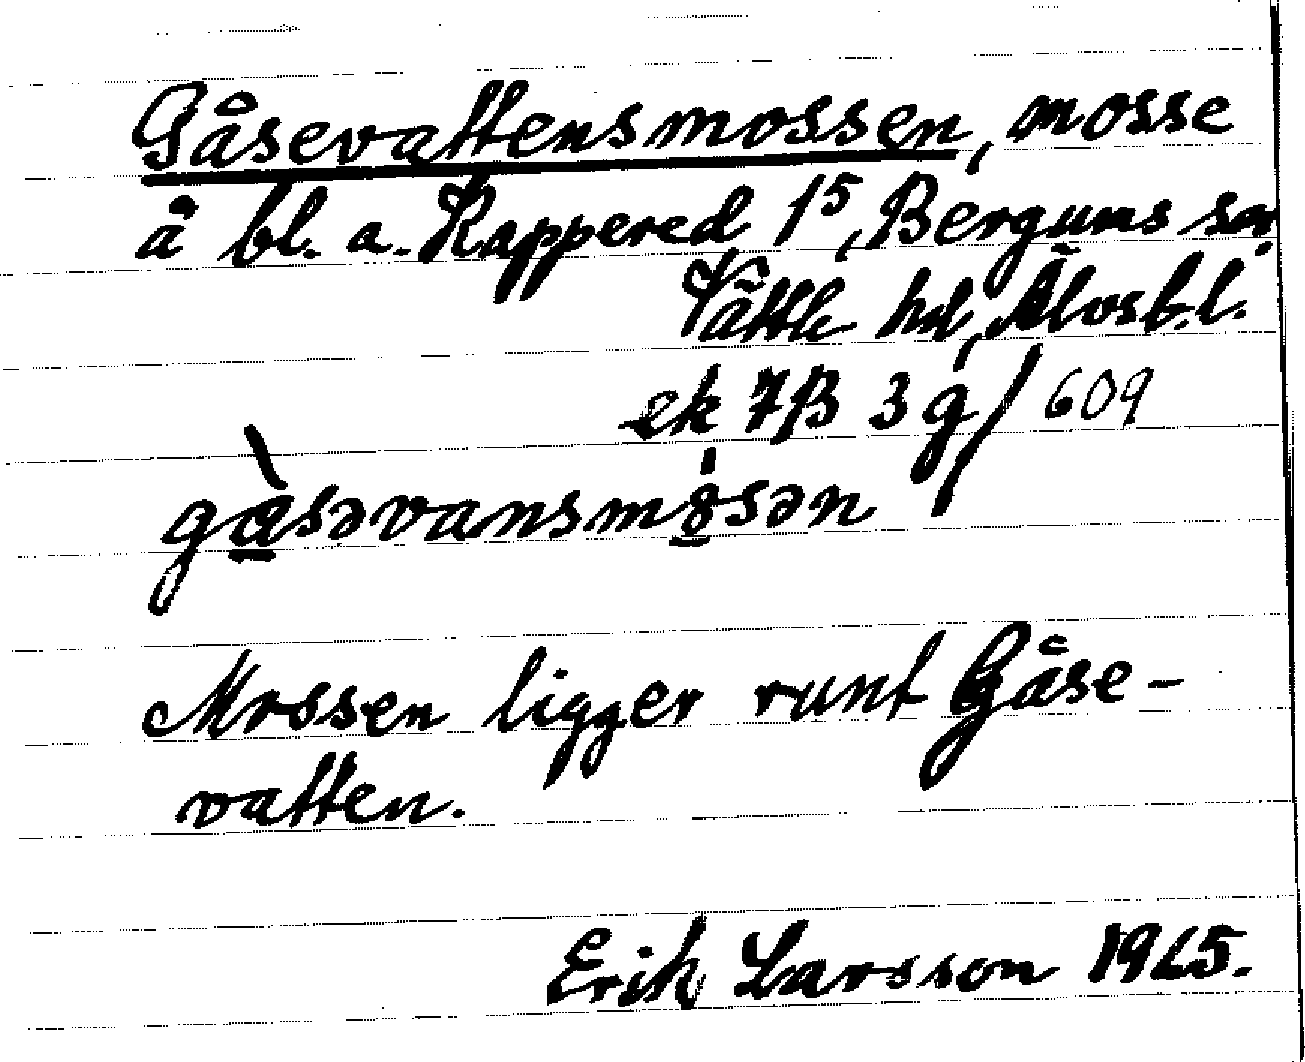 Gåsevattensmossen, mosse
å bl. a. Rappered 1⁵, Bergums sn
Vättle hd, Älvsb. l.
ek 7B 3g/609
gå̀səvansmo̱sən
Mossen ligger runt Gåse-
vatten.
Erik Larsson 1965.